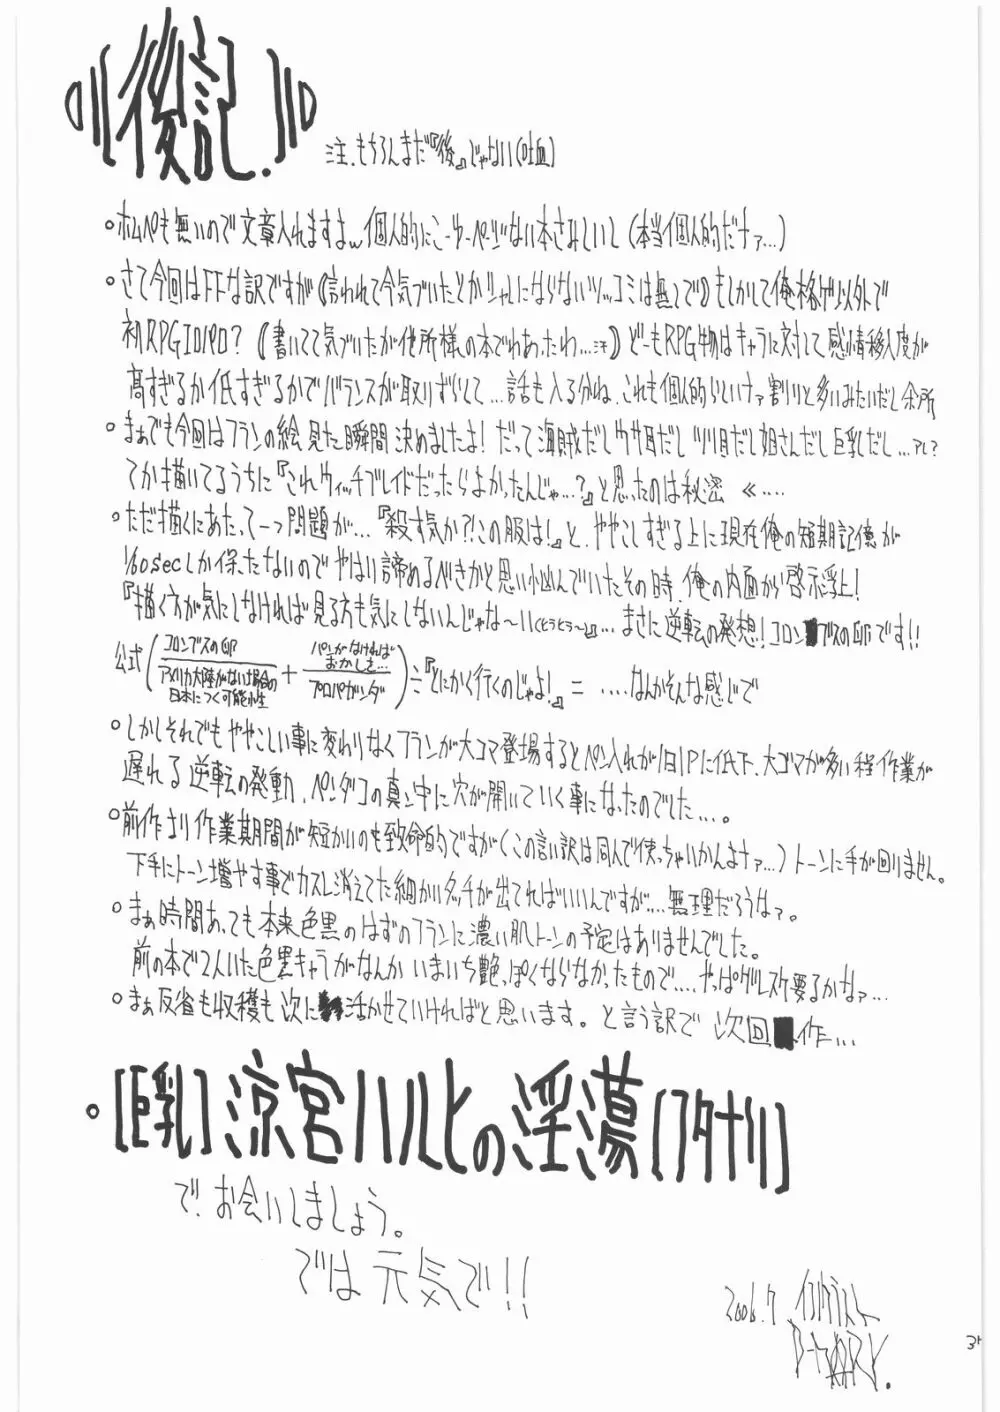 後記.
注.もちろんまだ『後』じゃない(吐血)
○ホムペも無いので文章入れますよw個人的にこーゆーページない本さみしいし(本当個人的だナァ…)
○さて今回はFFな訳ですが《言われて今気づいたとかシャレにならないツッコミは無しで》もしかして俺、格ゲ以外で
初RPGエロパロ?《書いてて気づいたが他所様の本でわあったわ…汗》どーもRPG物はキャラに対して感情移入度が
高すぎるか低すぎるかでバランスが取りずらくて…話も入る分ね、これも個人的らしいナァ割りと多いみたいだし余所
○まぁでも今回はフランの絵見た瞬間決めましたよ!だって海賊だしウサ耳だしツリ目だし姐さんだし巨乳だし…アレ?
てか描いてるうちに『これウィッチブレイドだったらよかったんじゃ…?』と思ったのは秘密《….
○ただ描くにあたって一つ問題が…『殺す気か?!この服は!』と、ややこしすぎる上に現在俺の短期記憶が
1/60secしか保たないのでやはり諦めるべきかと思い悩んでいたその時、俺の内面から啓示浮上!
『描く方が気にしなければ見る方も気にしないんじゃな〜い(とうとう〜』…まさに逆転の発想!コロンブスの卵です!!
公式(コロンブスの卵/アメリカ大陸がない場合の日本につく可能性+パンがなければおかしを…/プロパガンダ)÷『とにかく行くのじゃよ!』=….なんかそんな感じで
○しかしそれでもややこしい事に変わりなくフランが大コマ登場するとペン入れが1日1Pに低下、大ゴマが多い程作業が
遅れる逆転の発動、ペンダコの真ン中に穴が開いていく事になったのでした…。
○前作より作業期間が短かいのも致命的ですが(この言い訳は同人で使っちゃいかんよナァ…)トーンに手が回りません。
下手にトーン増やす事でカスレ消えてた細かいタッチが出てればいいんですが….無理だろうなァ。
○まぁ時間あっても本来色黒のはずのフランに濃い肌トーンの予定はありませんでした。
前の本で2人いた色黒キャラがなんかいまいち艶っぽくならなかったもので….やっぱグレスケ要るかなァ…
○まぁ反省も収穫も次に活かせていければと思います。と言う訳で次回作…
○[巨乳]涼宮ハルヒの淫蕩[フタナリ]
で、お会いしましょう。
では元気で!!
2006.7